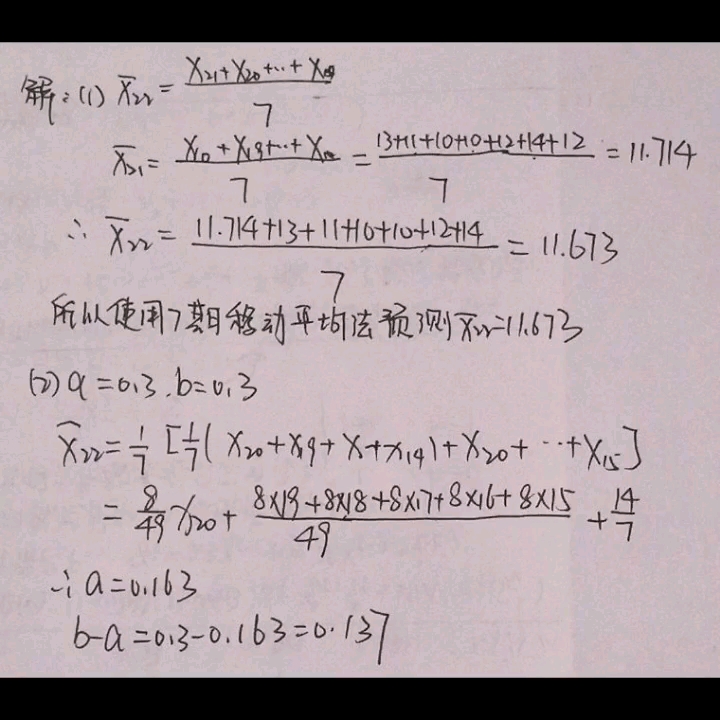 解:(1) X̄₂₂ = (X₂₁+X₂₀+…+X₁₅)/7
X̄₂₁ = (X₂₀+X₁₉+…+X₁₄)/7 = (13+11+10+10+12+14+12)/7 = 11.714
∴ X̄₂₂ = (11.714+13+11+10+10+12+14)/7 = 11.673
所以使用7期移动平均法预测X̄₂₂=11.673
(2) a=0.3. b=0.3
X̂₂₂ = 1/7 [1/7( X₂₀+X₁₉+X+X₁₄)+X₂₀+…+X₁₅]
= 8/49 X₂₀ + (8×19+8×18+8×17+8×16+8×15)/49 + 14/7
∴ a=0.163
b-a=0.3-0.163=0.137